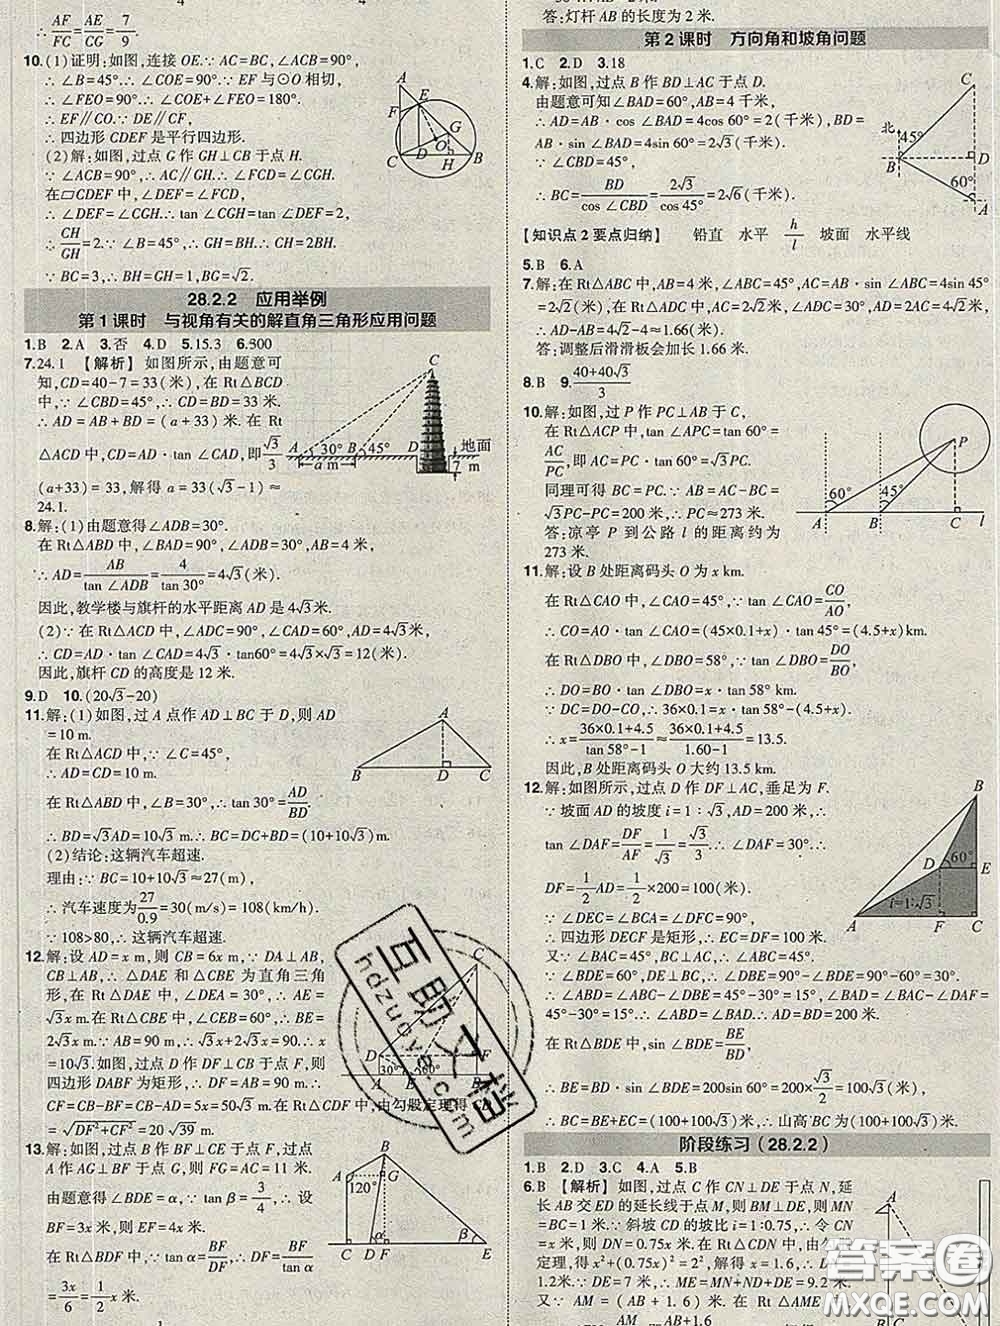 ∴ AF/FC = AE/CG = 7/9.
10.(1)证明:如图,连接 OE.∵ AC=BC,∠ACB=90°,
∴ ∠B=45°,∴ ∠COE=90°.∵ EF 与⊙O 相切,
∴ ∠FEO=90°,∴ ∠COE+∠FEO=180°.
∴ EF∥CO.∵ DE∥CF,
∴ 四边形 CDEF 是平行四边形.
(2)解:如图,过点 G 作 GH⊥CB 于点 H.
∵ ∠ACB=90°,∴ AC∥GH.∴ ∠FCD=∠CGH.
在▱CDEF 中,∠DEF=∠FCD,
∴ ∠DEF=∠CGH.∴ tan ∠CGH=tan ∠DEF=2,
∴ CH/GH=2.∵ ∠B=45°,∴ GH=BH.∴ CH=2BH.
∵ BC=3,∴ BH=GH=1,BG=√2.
28.2.2 应用举例
第 1 课时 与视角有关的解直角三角形应用问题
1.B 2.A 3.否 4.D 5.15.3 6.300
7.24.1 【解析】 如图所示,由题意可
知,CD=40-7=33(米),在 Rt△BCD
中,∵ ∠CBD=45°,∴ CD=BD=33 米.
∴ AD=AB+BD=(a+33)米.在 Rt
△ACD 中,CD=AD·tan ∠CAD,即√3/3
(a+33)=33,解得 a=33(√3-1)≈
24.1.
8.解:(1)由题意得∠ADB=30°.
在 Rt△ABD 中,∠BAD=90°,∠ADB=30°,AB=4 米,
∵ AD=AB/tan ∠ADB=4/tan30°=4√3(米).
因此,教学楼与旗杆的水平距离 AD 是 4√3 米.
(2)∵ 在 Rt△ACD 中,∠ADC=90°,∠CAD=60°,AD=4√3米,
∴ CD=AD·tan ∠CAD=4√3·tan60°=4√3×√3=12(米).
因此,旗杆 CD 的高度是 12 米.
9.D 10.(20√3-20)
11.解:(1)如图,过 A 点作 AD⊥BC 于 D,则 AD
=10 m.
在 Rt△ACD 中,∵ ∠C=45°,
∴ AD=CD=10 m.
在 Rt△ABD 中,∵ ∠B=30°,∴ tan30°=AD/BD,
∴ BD=√3AD=10√3 m.∴ BC=DC+BD=(10+10√3)m.
(2)结论:这辆汽车超速.
理由:∵ BC=10+10√3≈27(m),
∴ 汽车速度为27/0.9=30(m/s)=108(km/h).
∵ 108>80,∴ 这辆汽车超速.
12.解:设 AD=x m,则 CB=6x m,∵ DA⊥AB,
CB⊥AB,∴ △DAE 和△CBE 为直角三角
形,在 Rt△DAE 中,∠DEA=30°,∴ AE=
√3x m.在 Rt△CBE 中,∠CEB=60°,∴ BE=
2√3x m.∵ AB=90 m,∴ √3x+2√3x=90.∴
x=10√3.如图,过点 D 作 DF⊥CB 于点 F,则
四边形 DABF 为矩形,∴ DF=AB=90 m,∴
CF=CB-BF=CB-AD=5x=50√3 m.∴ 在 Rt△CDF 中,由勾股定理得 CD
=√(DF²+CF²)=20√39 m.
13.解:如图,过点 B 作 BF⊥CE 于点 F,过点
A 作 AG⊥BF 于点 G,则 FG=AC=11米.
由题意得∠BDE=α,∵ tan β=3/4,∴ 设
BF=3x 米,则 EF=4x 米.
在 Rt△BDF 中,∵ tan α=BF/DF,∴ DF=BF/tan α
=3x/6=1/2x 米.
答:灯杆 AB 的长度为 2 米.
第 2 课时 方向角和坡角问题
1.C 2.D 3.18
4.解:如图,过点 B 作 BD⊥AC 于点 D.
由题意可知∠BAD=60°,AB=4 千米,
∴ AD=AB·cos ∠BAD=4cos60°=2(千米),
BD=AB·sin ∠BAD=4sin60°=2√3(千米).
∵ ∠CBD=45°,
∴ BC=BD/cos ∠CBD=2√3/cos45°=2√6(千米)
【知识点 2 要点归纳】 铅直 水平 h/l 坡面 水平线
5.B 6.A
7.解:在 Rt△ABC 中,AB=4 米,∴ AC=AB·sin ∠ABC=4sin45°
=2√2(米).在 Rt△ADC 中,AD=AC/sin ∠ADC=4√2(米),
∴ AD-AB=4√2-4≈1.66(米).
答:调整后滑滑板会加长 1.66 米.
8.B 9.(40+40√3)/3
10.解:如图,过 P 作 PC⊥AB 于 C,
在 Rt△ACP 中,tan ∠APC=tan60°=
AC/PC,即 AC=PC·tan60°=√3PC.
同理可得 BC=PC.∵ AB=AC-BC=
√3PC-PC=200 米,∴ PC≈273 米.
答:凉亭 P 到公路 l 的距离约为
273 米.
11.解:设 B 处距离码头 O 为 x km.
在 Rt△CAO 中,∠CAO=45°,∵ tan ∠CAO=CO/AO,
∴ CO=AO·tan ∠CAO=(45×0.1+x)·tan45°=(4.5+x)km.
在 Rt△DBO 中,∠DBO=58°,∵ tan ∠DBO=DO/BO,
∴ DO=BO·tan ∠DBO=x·tan58°(km).
∵ DC=DO-CO,∴ 36×0.1=x·tan58°-(4.5+x).
∴ x=(36×0.1+4.5)/(tan58°-1)≈(36×0.1+4.5)/(1.60-1)=13.5.
因此,B 处距离码头 O 大约 13.5 km.
12.解:如图所示,过点 D 作 DF⊥AC,垂足为 F.
∵ 坡面 AD 的坡度 i=1∶√3,AD=200 米,
tan ∠DAF=DF/AF=1/√3=√3/3.∴ ∠DAF=30°.
DF=1/2AD=1/2×200=100(米).
∵ ∠DEC=∠BCA=∠DFC=90°,
∴ 四边形 DECF 是矩形,∴ EC=DF=100(米).
又∵ ∠BAC=45°,BC⊥AC,∴ ∠ABC=45°.
∵ ∠BDE=60°,DE⊥BC,∴ ∠DBE=90°-∠BDE=90°-60°=30°,
∴ ∠ABD=∠ABC-∠DBE=45°-30°=15°,∠BAD=∠BAC-∠DAF=45°
-30°=15°.∴ ∠ABD=∠BAD.∴ AD=BD=200 米.
在 Rt△BDE 中,sin ∠BDE=BE/BD,
∴ BE=BD·sin ∠BDE=200sin60°=200×√3/2=100√3(米).
∴ BC=BE+EC=(100+100√3)米,∴ 山高为(100+100√3)米.
阶段练习(28.2.2)
1.B 2.D 3.C 4.A 5.B
6.B 【解析】 如图,过点 C 作 CN⊥DE 于点 N,延
长 AB 交 ED 的延长线于点 M,则 BM⊥DE,则 MN
=BC=1 米.∵ 斜坡 CD 的坡比 i=1∶0.75,∴ 令
CN=x 米,则 DN=0.75x 米.在 Rt△CDN 中,由勾股
定理,得 x²+(0.75x)²=2²,解得 x=1.6,∴ DN=
1.2米.∵ DE=7 米,∴ ME=MN+ND+DE=9.2 米,
又∵ AM=(AB+1.6)米.在 Rt△AME 中,
互助文档
hdzuoye.com
答案圈
MXQE.COM